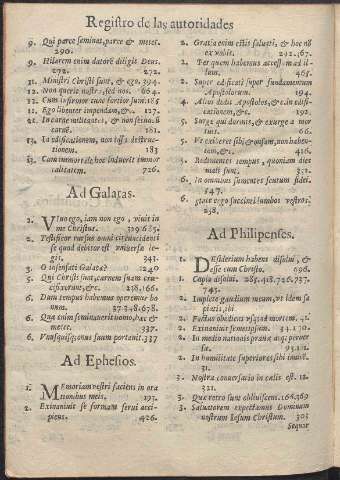 Registro de las autoridades
9. Qui parce seminat, parce & metet.
290.
9. Hilarem enim datorē diligit Deus.
272. 272.
11. Ministri Christi sunt, & ego. 394.
12. Non quero vestra, sed vos. 664.
12. Cum infirmor tunc fortior sum. 185
12. Ego libenter impendam, &c. 127.
12. In carne ambulātes, & non secundū
carnē. 181.
13. In ædificationem, non in destruc-
tionem. 183
13. Cum immortale hoc induerit immor
talitatem. 726.
Ad Galatas.
2. Vivo ego, iam non ego, vivit in
me Christus. 329.685.
2. Testificor rursus omni circuncidenti
se quod debitor est universæ le-
gis. 341.
3. O insensati Galatæ? 1240
5. Qui Christi sunt, carnem suam cru-
cifixerunt, &c. 238, 166.
6. Dum tempus habemus operemur bo
num. 37.348.678.
6. Quæ enim seminaverit homo, hæc &
metet. 337.
6. Unusquisq; onus suum portavit. 337
Ad Ephesios.
1. Memoriam vestri faciens in ora
tionibus meis. 193.
2. Exinanivit se formam servi acci-
piens. 426.
2. Gratia enim estis salvati, & hoc nō
ex vobis. 292. 367.
2. Per quem habemus accessum ad il-
lum. 465.
2. Super ædificati super fundamentum
Apostolorum. 194.
4. Alios dedit Apostolos, & c. in ædifi-
cationem, &c. 192.
5. Surge qui dormis, & exurge a mor
tuis. 66.
5. Vt exiberet sibi gloriosam, non haben-
tem, &c. 416.
5. Redimentes tempus, quoniam dies
mali sunt. 331.
6. In omnibus sumentes scutum fidei.
547.
6. State ergo succincti lumbos vestros
238.
Ad Philipenses.
1. Desiderium habens disolui, &
esse cum Christo. 696.
1. Cupio disolui. 285. 418. 726. 737.
743.
2. Implete gaudium meum, ut idem sa
piatis, ibi.
2. Factus obediens usq; ad mortem. 41.
2. Exinanivit semetipsum. 34. 170.
2. In medio nationis pravæ atq; perver
sæ. 93.12.
2. In humilitate superiores sibi invicē.
31.
3. Nostra conversatio in cælis est. 12.
321.
3. Quæ retro sunt obliviscens. 166.369
3. Salvatorem expectamus Dominum
nostrum Iesum Christum. 303
Sequor